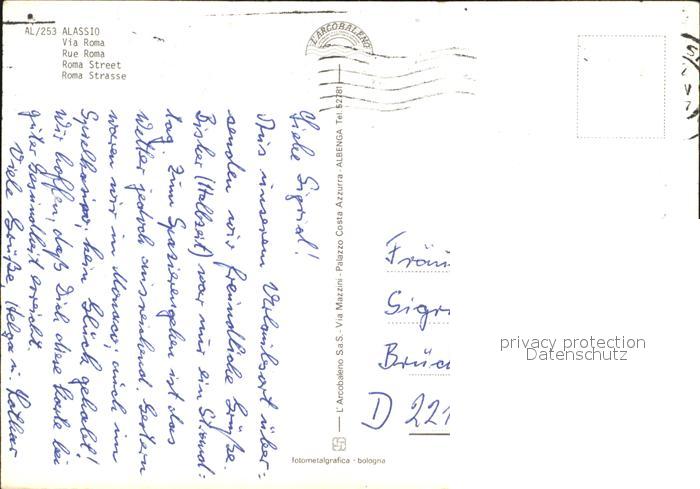 AL/253 ALASSIO
Via Roma
Rue Roma
Roma Street
Roma Strasse
L'ARCOBALENO
Liebe Sigrid!
Aus unserem Urlaubsort über-
senden wir freundliche Grüße.
Bisher (Halbzeit) war nur ein Strand-
tag zum Spazierengehen ist das
Wetter jedoch ausreichend. Gestern
waren wir in Monaco; auch im
Spielkasino, kein Glück gehabt!
Wir hoffen, daß Dich diese Karte bei
guter Gesundheit erreicht.
Viele Grüße, Helga u. Lothar
L'Arcobaleno S.a.S. - Via Mazzini - Palazzo Costa Azzurra - ALBENGA Tel. 52781
fotometalgrafica - bologna
Fräu
Sigr
Brüc
D 221
privacy protection
Datenschutz